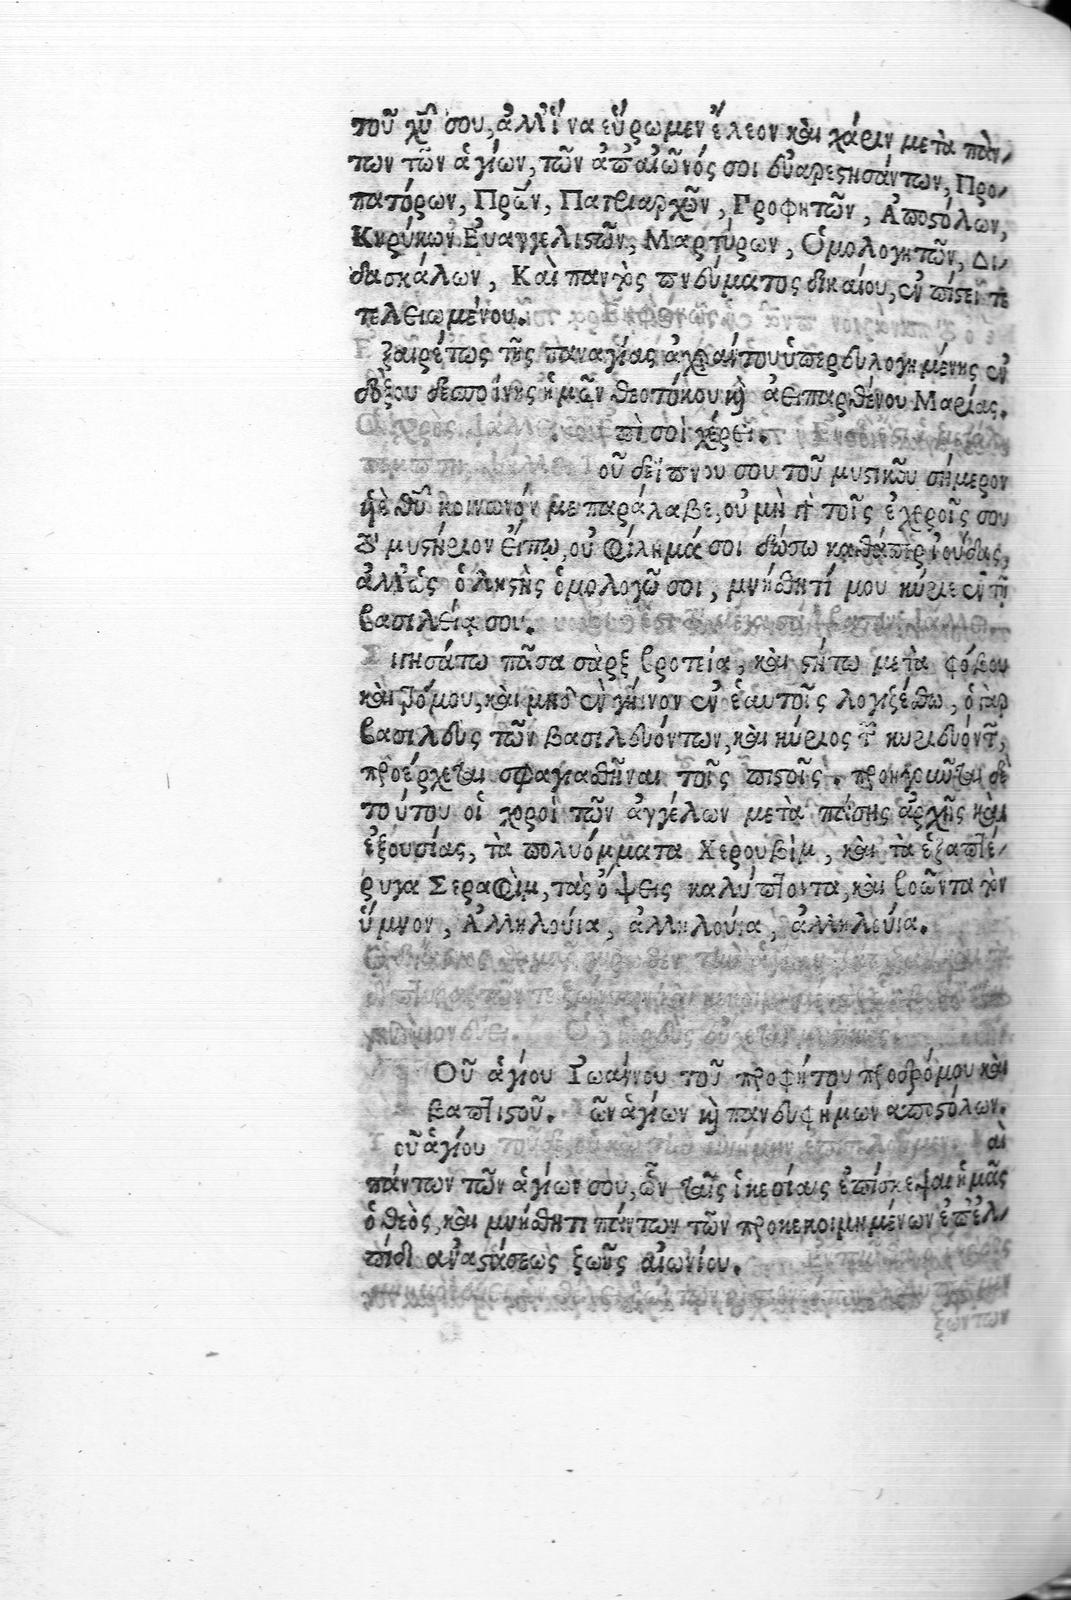 τοῦ χῦ σου, ἀλλ' ἵνα εὕρωμεν ἔλεον καὶ χάριν μετὰ πάν-
των τῶν ἁγίων, τῶν ἀπ' αἰῶνός σοι εὐαρεστησάντων, Προ-
πατόρων, Πρῶν, Πατριαρχῶν, Προφητῶν, Ἀποστόλων,
Κηρύκων Εὐαγγελιστῶν, Μαρτύρων, Ὁμολογητῶν, Δι-
δασκάλων, Καὶ παντὸς πνεύματος δικαίου, ἐν πίστει τε
τελειωμένου.
ξαιρέτως τῆς παναγίας ἀχράντου ὑπερευλογημένης ἐν
δόξου δεσποίνης ἡμῶν θεοτόκου καὶ ἀειπαρθένου Μαρίας.
πὶ σοὶ χέρει.
οῦ δείπνου σου τοῦ μυστικοῦ σήμερον
ὑὲ θῦ κοινωνόν με παράλαβε, οὐ μὴ γὰ τοῖς ἐχθροῖς σου
τὸ μυστήριον εἴπω, οὐ φίλημά σοι δώσω καθάπερ ἰούδας,
ἀλλ' ὡς ὁ λῃστὴς ὁμολογῶ σοι, μνήσθητί μου κύριε ἐν τῇ
βασιλείᾳ σου.
ιγησάτω πᾶσα σὰρξ βροτεία, καὶ στήτω μετὰ φόβου
καὶ τρόμου, καὶ μηδὲν γήινον ἐν ἑαυτοῖς λογιζέσθω, ὁ γὰρ
βασιλεὺς τῶν βασιλευόντων, καὶ κύριος τῶν κυριευόντων,
προέρχεται σφαγιασθῆναι τοῖς πιστοῖς. προηγοῦνται δὲ
τούτου οἱ χοροὶ τῶν ἀγγέλων μετὰ πάσης ἀρχῆς καὶ
ἐξουσίας, τὰ πολυόμματα Χερουβὶμ, καὶ τὰ ἑξαπτέ-
ρυγα Σεραφὶμ, τὰς ὄψεις καλύπτοντα, καὶ βοῶντα τὸν
ὕμνον, Ἀλληλούια, ἀλληλούια, ἀλληλούια.
Οῦ ἁγίου Ἰωάννου τοῦ προφήτου προδρόμου καὶ
βαπτιστοῦ. ῶν ἁγίων καὶ πανευφήμων ἀποστόλων.
οῦ ἁγίου αὶ
πάντων τῶν ἁγίων σου, ὧν ταῖς ἱκεσίαις ἐπίσκεψαι ἡμᾶς
ὁ θεὸς, καὶ μνήσθητι πάντων τῶν προκεκοιμημένων ἐπ' ἐλ-
πίδι ἀναστάσεως ζωῆς αἰωνίου.
ζώντων